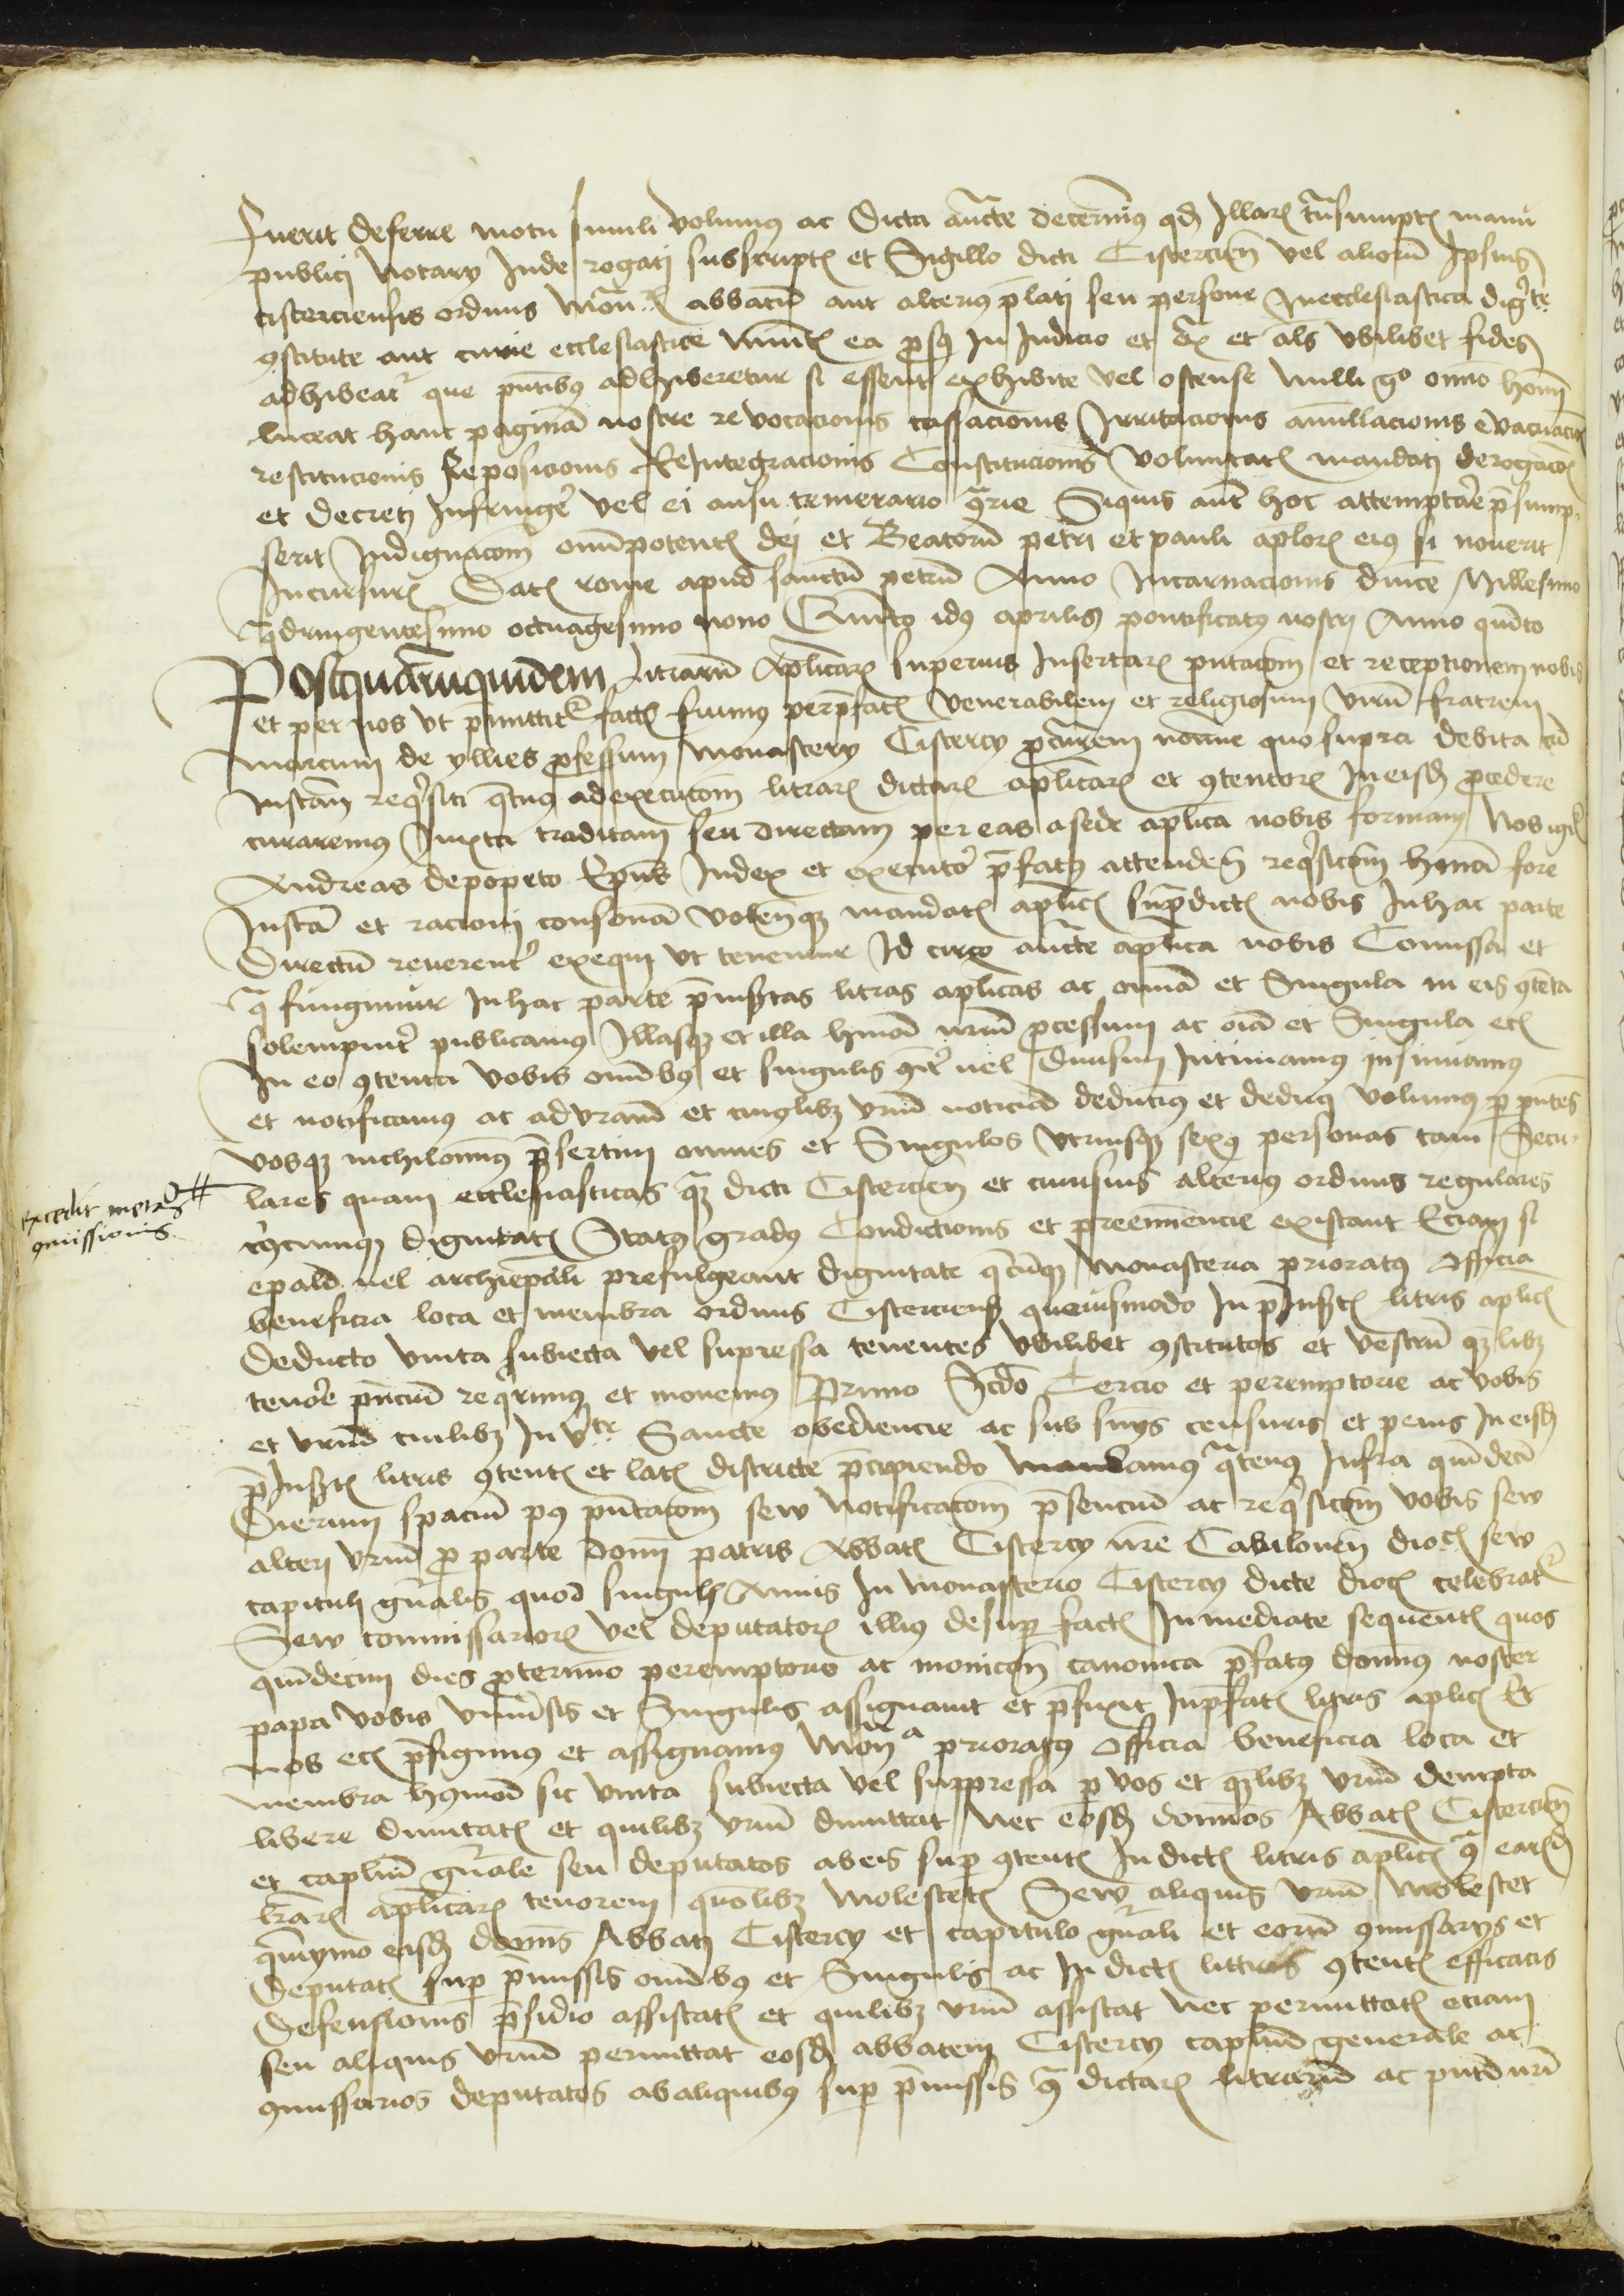 fuerit deferre motu simili volumus ac dicta aucte decernimus qd illarum transumptis manu
publici Notarij Inde rogati subscriptis et Sigillo dicti Cistercien vel aliorum Ipsius
cisterciensis ordinis Monrum abbatum aut alterius prelati seu persone In ecclesiastica digte
9stitute aut curie ecclesiastice munitis ea prorsus In Iudicio et extra et als vbilibet fides
adhibeatr que pntibus adhiberetur si essent exhibite vel ostense Nulli go omno homi
liceat hanc paginam nostre revocacionis cassacionis Irritacionis annullacionis evacuacois
restitucionis reposicionis ReIntegracionis Constitucionis voluntatis mandati derogacois
et decreti Infringere vel ei ausu temerario 9traire Siquis autem hoc attemptare presump
serit Indignacom omnipotentis dei et Beatorum petri et pauli aplorum eius se noverit
Incursurum Datis rome apud sanctum petrum Anno Incarnacionis dnice Millesimo
quadringentesimo octuagesimo nono Quinto idus aprilis pontificatus nostri Anno quinto
Postquarumquidem litrarum Aplicarum superius Insertarum pntacom et receptionem nobis
et per nos vt premittitr factis fuimus per prefatum venerabilem et religiosum virum fratrem
marcum de yllies professum Monasterij Cistercij procurem nomine quo supra debita cum
instancia reqsiti qtnus ad executom litrarum dictarum aplicarum et 9tentorum In eisdem procedere
curaremus Iuxta traditam seu directam per eas a sede aplica nobis formam Nos igitur
Andreas de popeto Epus Iudex et executor prefatus attenden reqsitom hmoi fore
Iustam et racioni consonam volentesque mandatis aplicis supradictis nobis In hac parte
directum reverenter exequi vt tenemur Id circo aucte aplica nobis Comissa et
qua fungimur In hac parte preinsertas litras aplicas ac omnia et Singula in eis 9tenta
solempniter publicamus Illasque et illa hmoi nrum processum ac oia et Singula etc
In eo 9tenta vobis omnibus et singulis 9iter vel divisim Intimamus insinuamus
et notificamus ac ad vram et cuiuslibet vrum noticiam deducimus et deduci volumus per pntes
vosque nichilominus presertim omnes et Singulos vtriusque sexus personas tam Secu
lares quam ecclesiasticas quam dicti Cistercien et cuiusvis alterius ordinis regulares
cuiuscumque dignitatis Status gradus Condictionis et preeminencie existant Eciam si
epali vel archiepali prefulgeant dignitate quecumque Monasteria prioratus Officia
beneficia loca et membra ordinis Cisterciensis quovismodo In preInsertis litris aplicis
deducto vnita subiecta vel supressa tenentes vbilibet 9stitutos et vestrum quemlibet
tenore pncium requirimus et monemus Primo Scdo Tercio et peremptorie ac vobis
et vrum cuilibet In vte Sancte obediencie ac sub sentencijs censuris et penis In eisdem
preInsertis litris 9tentis et latis districte precipiendo Mandamus quatenus Infra quindecim
dierum spacium post pntacom sew Notificacom presencium ac reqsitom vobis sew
alteri vrum pro parte domi patris Abbatis Cistercij nre Cabilonen diocis sew
capituli gnralis quod singulis Annis In Monasterio Cistercij dicte diocis celebratr
Sew commissariorum vel deputatorum illius desuper factis Inmediate sequentis quos
quindecim dies pro termino peremptorio ac monicione canonica prefatus dominus noster
papa vobis vniversis et Singulis assignavit et prefixit In prefatis litris aplicis Et
Nos etc prefigimus et assignamus Mona prioratus Officia beneficia loca et
membra huiusmod sic vnita subiecta vel suppressa per vos et quemlibet vrum dempta
libere dimitatis et quilibet vrum dimittat Nec eosdem dominos Abbatem Cistercien
et caplum gnrale seu deputatos ab eis super 9tentis In dictis litris aplicis 9tra earundem
lrarum aplicarum tenorem quomodolibet Molestetis Sew aliquis vrum Molestet
quinymo eisdem dominis Abbati Cistercij et capitulo gnrali et eorum 9missarijs et
deputatis super premissis omnibus et Singulis ac In dictis litteris 9tentis efficacis
defensionis presidio assistatis et quilibet vrum assistat nec permittatis eciam
seu aliquis vrum permittat eosdem abbatem Cistercij caplum generale ac
9missarios deputatos ab aliquibus super premissis 9tra dictarum litrarum ac pntium
excedit metas
9missionis